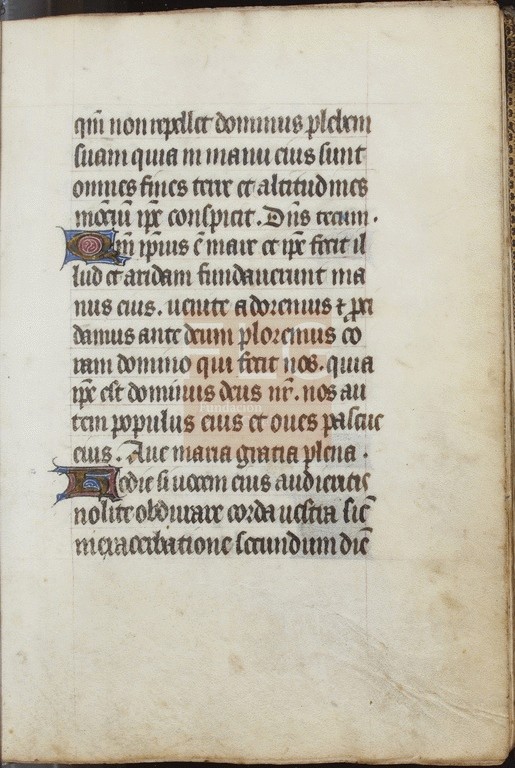 qm̄ non repellet dominus plebem
suam quia in manu eius sunt
omnes fines terre et altitudines
monciū ip̄e conspicit. Dn̄s tecum.
Qm̄ ipsius ē mare et ip̄e fecit il
lud et aridam fundauerunt ma
nus eius. uenite adoremus ⁊ ꝓci
damus ante deum ploremus co
ram domino qui fecit nos. quia
ip̄e est dominus deus nr̄. nos au
tem populus eius et oues pascue
eius. Aue maria gratia plena.
Hodie si uocem eius audieritis
nolite obdurare corda uestra sic̄
in exacerbatione secundum diē
FLG
Fundación